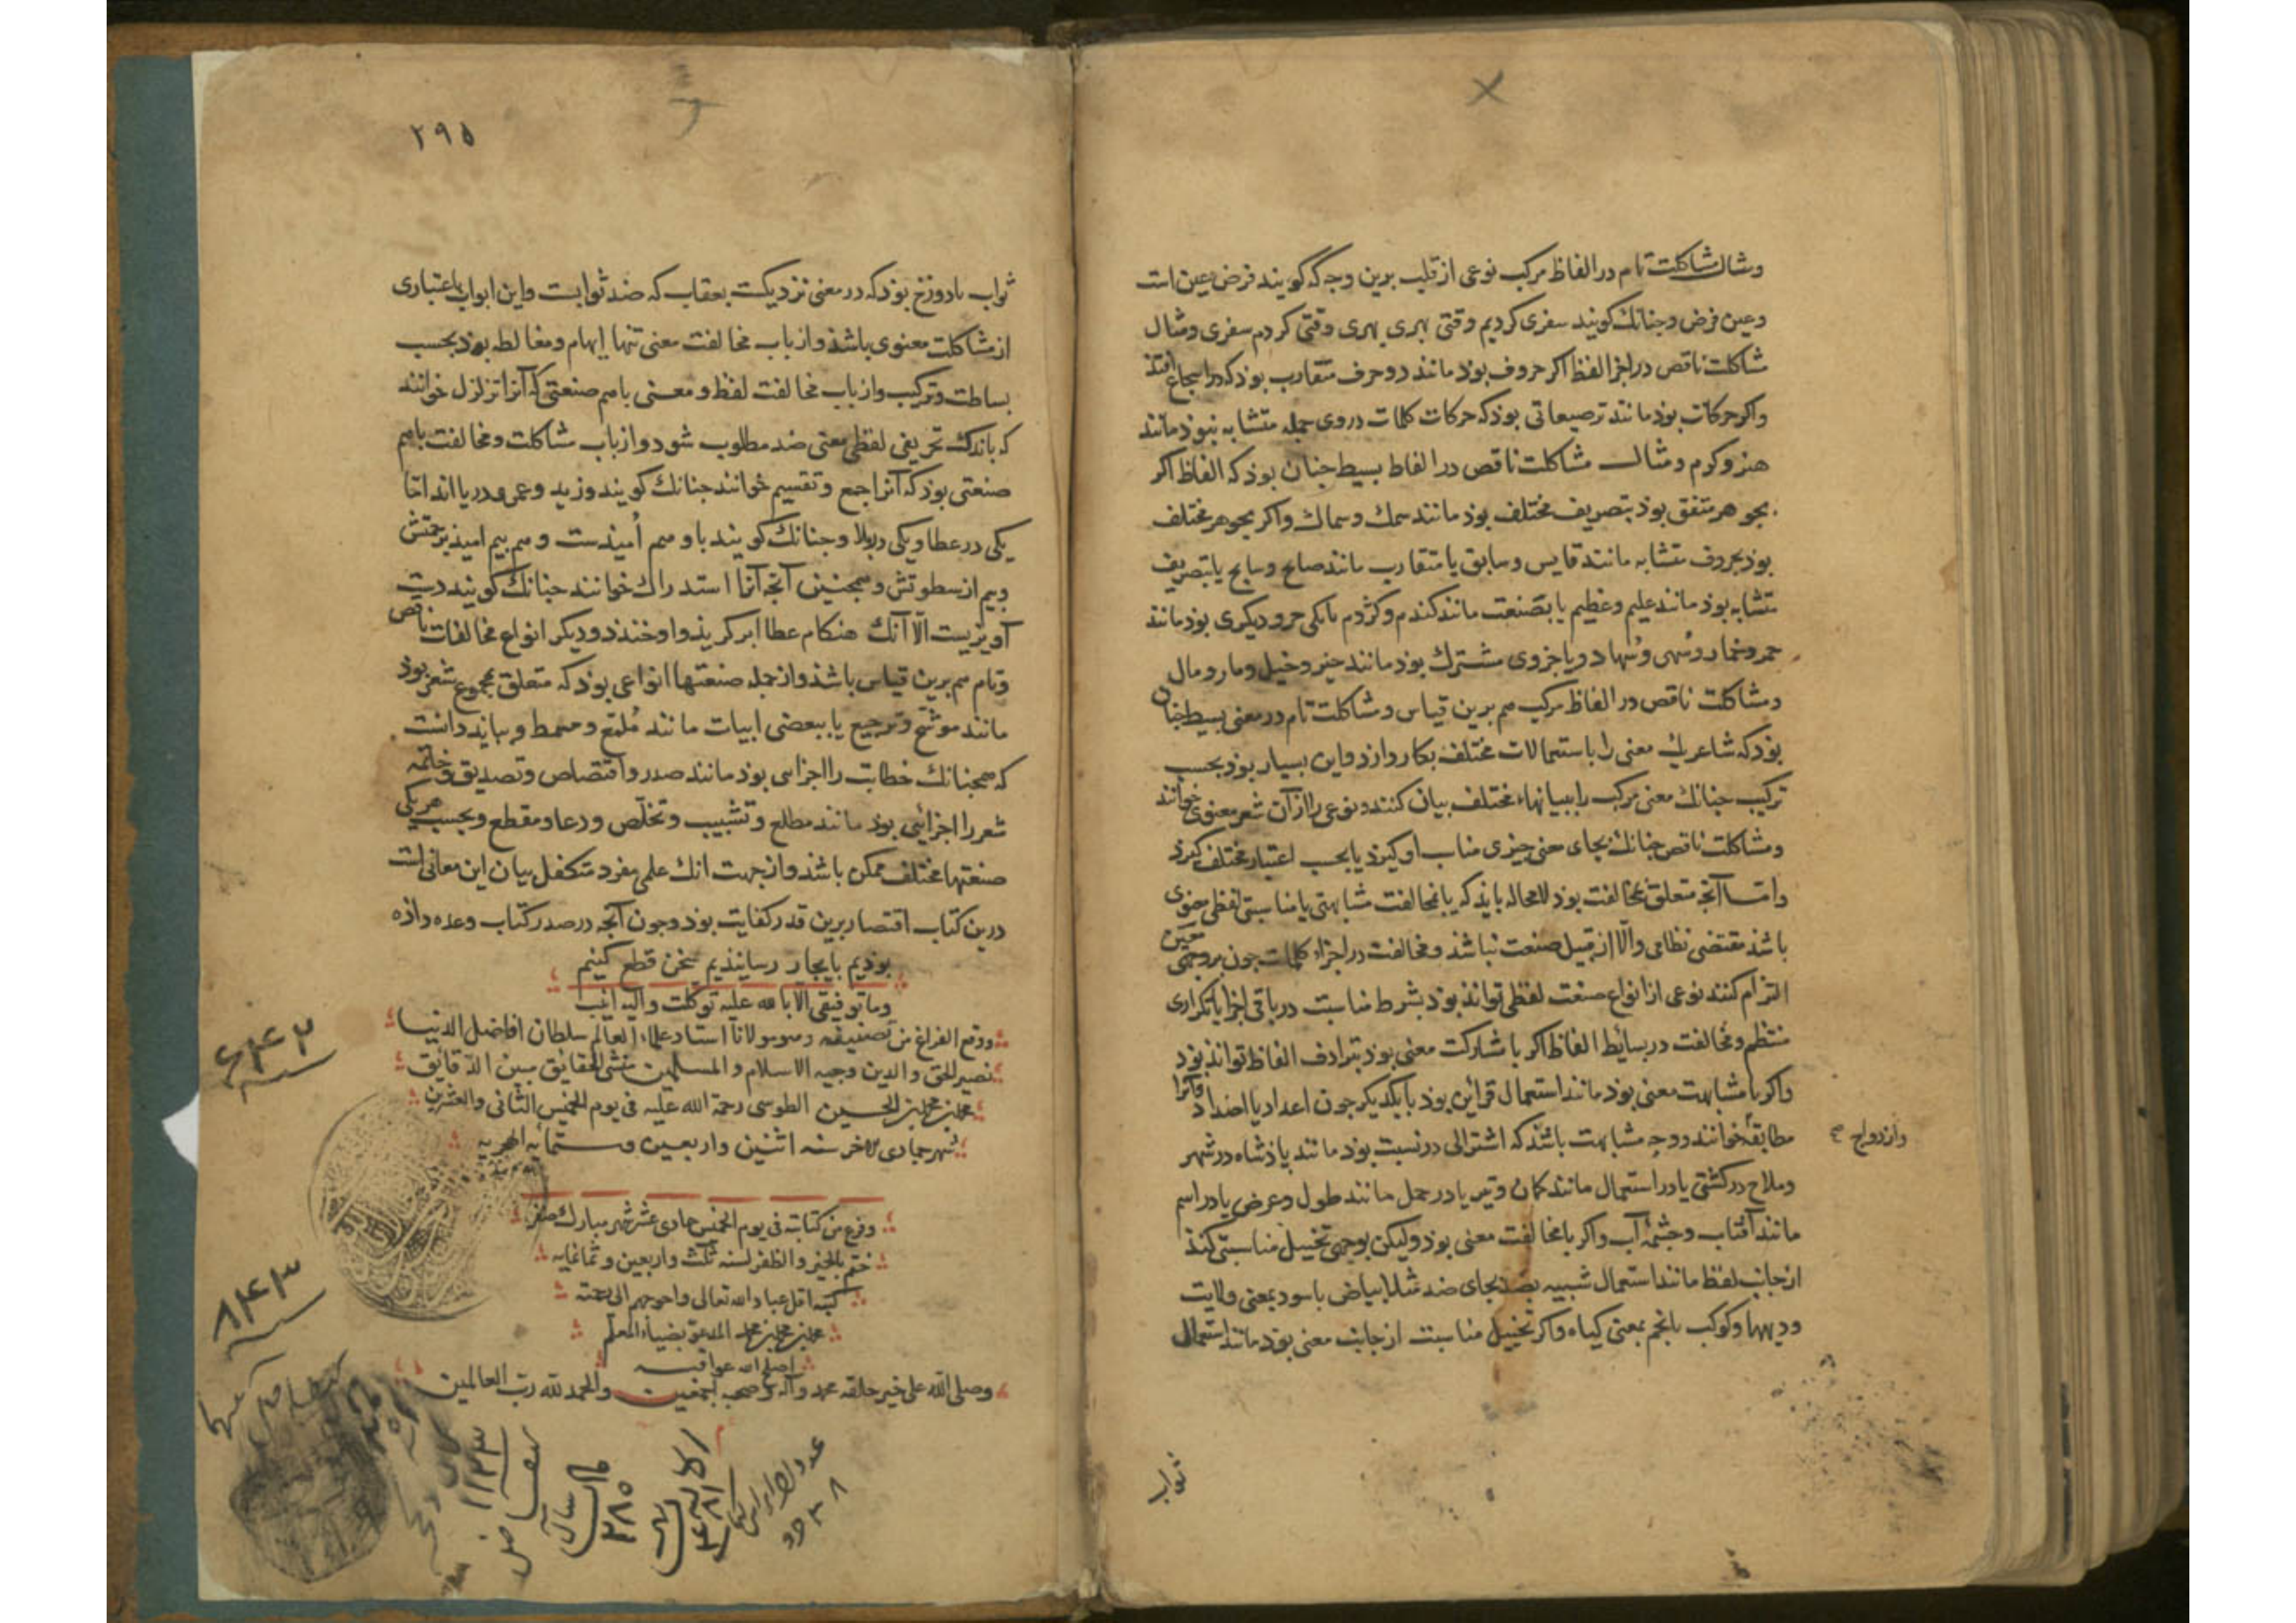 ومثال مشاکلت تام در الفاظ مرکب نوعی از قلب برین وجه که کویند فرض عین است
وعین فرض وجنانك کویند سفری کردیم وقتی بهری بهری وقتی کردم سفری ومثال
مشاکلت ناقص در اجزا لفظ اکر حروف بوذ مانند دو حرف متقارب بوذ که در اسجاع افتد
واکر حرکات بوذ مانند ترصیعاتی بوذ که حرکات کلمات دروی جمله متشابه نبوذ مانند
هنر وکرم ومثال مشاکلت ناقص در الفاظ بسیط جنان بوذ که الفاظ اکر
بجوهر متفق بوذ بتصریف مختلف بوذ مانند سمك وسماك واکر بجوهر مختلف
بوذ بحروف متشابه مانند قایس وسابق یا متقارب مانند صالح وسابح یا بتصریف
متشابه بوذ مانند علیم وعظیم یا بصنعت مانند کندم وکژدم یا یکی جزو دیکری بوذ مانند
خمر وخمار وسهی وسهاد ویا جزوی مشترك بوذ مانند خیر وخیل ومار ومال
ومشاکلت ناقص در الفاظ مرکب هم برین قیاس ومشاکلت تام در معنی بسیط جنان
بوذ که شاعر یك معنی را باستعمالات مختلف بکار دارد واین بسیار بوذ بحسب
ترکیب جنانك معنی مرکب را ببیانهاء مختلف بیان کنند ونوعی را از آن شعر معنوی خوانند
ومشاکلت ناقص جنانك بجای معنی جیزی مناسب او کیرد یا بحسب اعتبار مختلف کیرد
واما آنچه متعلق بمخالفت بوذ لامحاله بایذ که با مخالفت مشابهتی یا مناسبتی لفظی یا معنوی
باشد مقتضی نظامی والا از قبیل صنعت نباشد ومخالفت در اجزاء کلمات جون بر وجهی معین
التزام کنند نوعی از انواع صنعت لفظی تواند بوذ بشرط مناسبت در باقی اجزا یا تکراری
منتظم ومخالفت در بسائط الفاظ اکر با مشارکت معنی بوذ بترادف الفاظ تواند بوذ
واکر با مشابهت معنی بوذ مانند استعمال قرائن بوذ با یکدیکر جون اعداد یا اضداد وآنرا
مطابقه خوانند ووجه مشابهت باشد که اشتراکی در نسبت بوذ مانند پادشاه در شهر
وازدواج صح
وملاح در کشتی یا در استعمال مانند کمان وتیر یا در حمل مانند طول وعرض یا در اسم
مانند آفتاب وچشمه آب واکر با مخالفت معنی بوذ ولیکن بوجهی تخییل مناسبتی کند
از جانب لفظ مانند استعمال شبیه بضد بجای ضد مثلا بیاض با سود بمعنی ولایت
ودیهها وکوکب با نجم بمعنی کیاه واکر تخییل مناسبت از جانب معنی بوذ مانند استعمال
ثواب
۲۹۵
ثواب با دوزخ بوذ که در معنی نزدیکست بعقاب که ضد ثوابست واین ابواب باعتباری
از مشاکلت معنوی باشد واز باب مخالفت معنی تنها ایهام ومغالطه بوذ بحسب
بساطت وترکیب واز باب مخالفت لفظ ومعنی با هم صنعتی که آنرا تزلزل خوانند
که باندك تحریفی لفظی معنی ضد مطلوب شود واز باب مشاکلت ومخالفت باهم
صنعتی بوذ که آنرا جمع وتقسیم خوانند جنانك کویند وزید وعمر ودریا اند اما
یکی در عطا ویکی در بلا وجنانك کویند باو هم اُمیذست وهم بیم امیذ برحمتش
وبیم از سطوتش وهمجنین آنچه آنرا استدراك خوانند جنانك کویند دست
آویزیست الا آنك هنکام عطا ابر کریذ واو خندد ودیکر انواع مخالفات ناقص
وتام هم برین قیاس باشد واز جمله صنعتها انواعی بوذ که متعلق بمجموع شعر بوذ
مانند موشّح وترجیع یا ببعضی ابیات مانند مُلمّع ومسمط وبباید دانست
که همجنانك خطابت را اجزایی بوذ مانند صدر واقتصاص وتصدیق وخاتمه
شعر را اجزائی بوذ مانند مطلع وتشبیب وتخلّص ودعا ومقطع وبحسب هر یکی
صنعتها مختلف ممکن باشد واز جهت انك علمی مفرد متکفل بیان این معانی است
درین کتاب اقتصار برین قدر کفایت بوذ وجون آنچه در صدر کتاب وعده داذه
بوذیم بایجاز رسانیذیم سخن قطع کنیم
وما توفیقی الا بالله علیه توکلت والیه انیب
ووقع الفراغ من تصنیفه وهو مولانا استاد علماء العالم سلطان افاضل الدنیا
نصیر الحق والدین وجیه الاسلام والمسلمین منشئ الحقایق مبین الدقایق
محمد بن محمد بن الحسین الطوسی رحمة الله علیه فی یوم الخمیس الثانی والعشرین
شهر جمادی الاخر سنه اثنین واربعین وستمایه الهجریه
۶۴۲
وفرغ من کتابته فی یوم الخمیس حادی عشر شهر مبارك صفر
ختم بالخیر والظفر لسنه ثلث واربعین وثمانمایه
۸۴۳
کتبه اقل عباد الله تعالی واحوجهم الی رحمته
محمد بن محمد بن محمد المدعو بضیاء المعلم
اصلح الله عواقبه
وصلی الله علی خیر خلقه محمد وآله وصحبه اجمعین والحمد لله رب العالمین
۱۱۳۳
۲۸۵